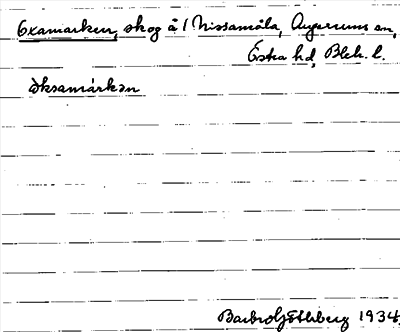 Oxamarken, skog å 1 Nissamåla, Augerums sn,
Östra hd, Blek. l.
oksamárkan
Barbro Göthberg 1934